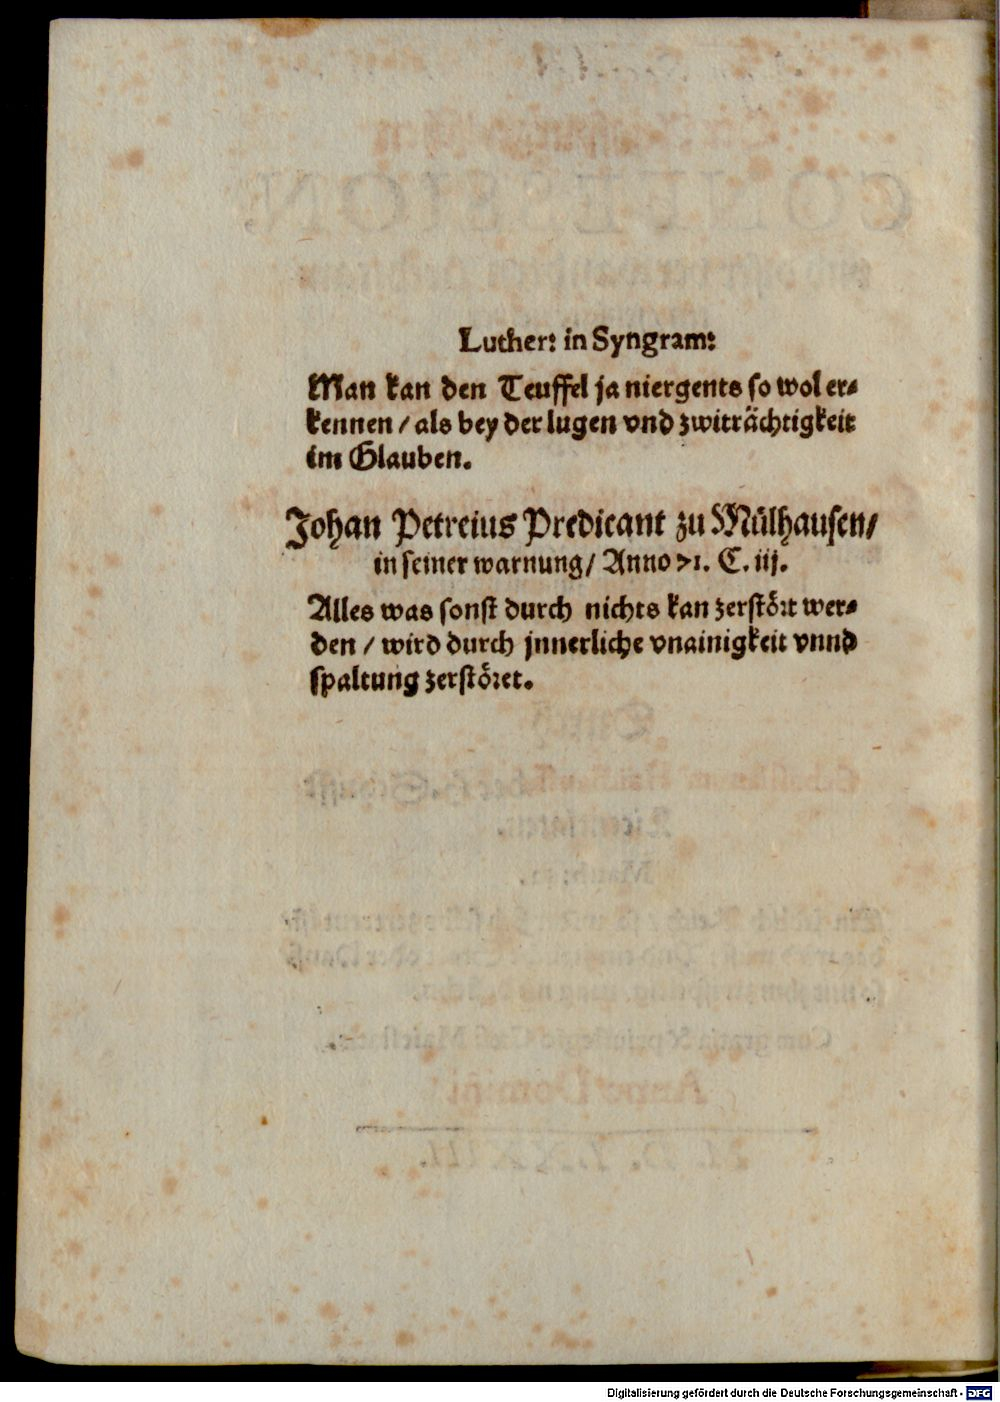 Luther: in Syngram:
Man kan den Teuffel ja niergents so wol er-
kennen / als bey der lugen vnd zwiträchtigkeit
im Glauben.
Johan Petreius Predicant zu Mülhausen/
in seiner warnung/ Anno 71. C. iij.
Alles was sonst durch nichts kan zerstört wer-
den / wird durch jnnerliche vnainigkeit vnnd
spaltung zerstöret.
Digitalisierung gefördert durch die Deutsche Forschungsgemeinschaft - DFG